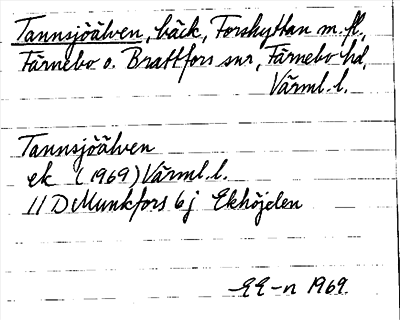 Tannsjöälven, bäck, Forshyttan m. fl.,
Färnebo o. Brattfors snr, Färnebo hd,
Värml. l.
Tannsjöälven
ek (1969) Värml. l.
11 D Munkfors 6 j Ekhöjden
EE-n 1969